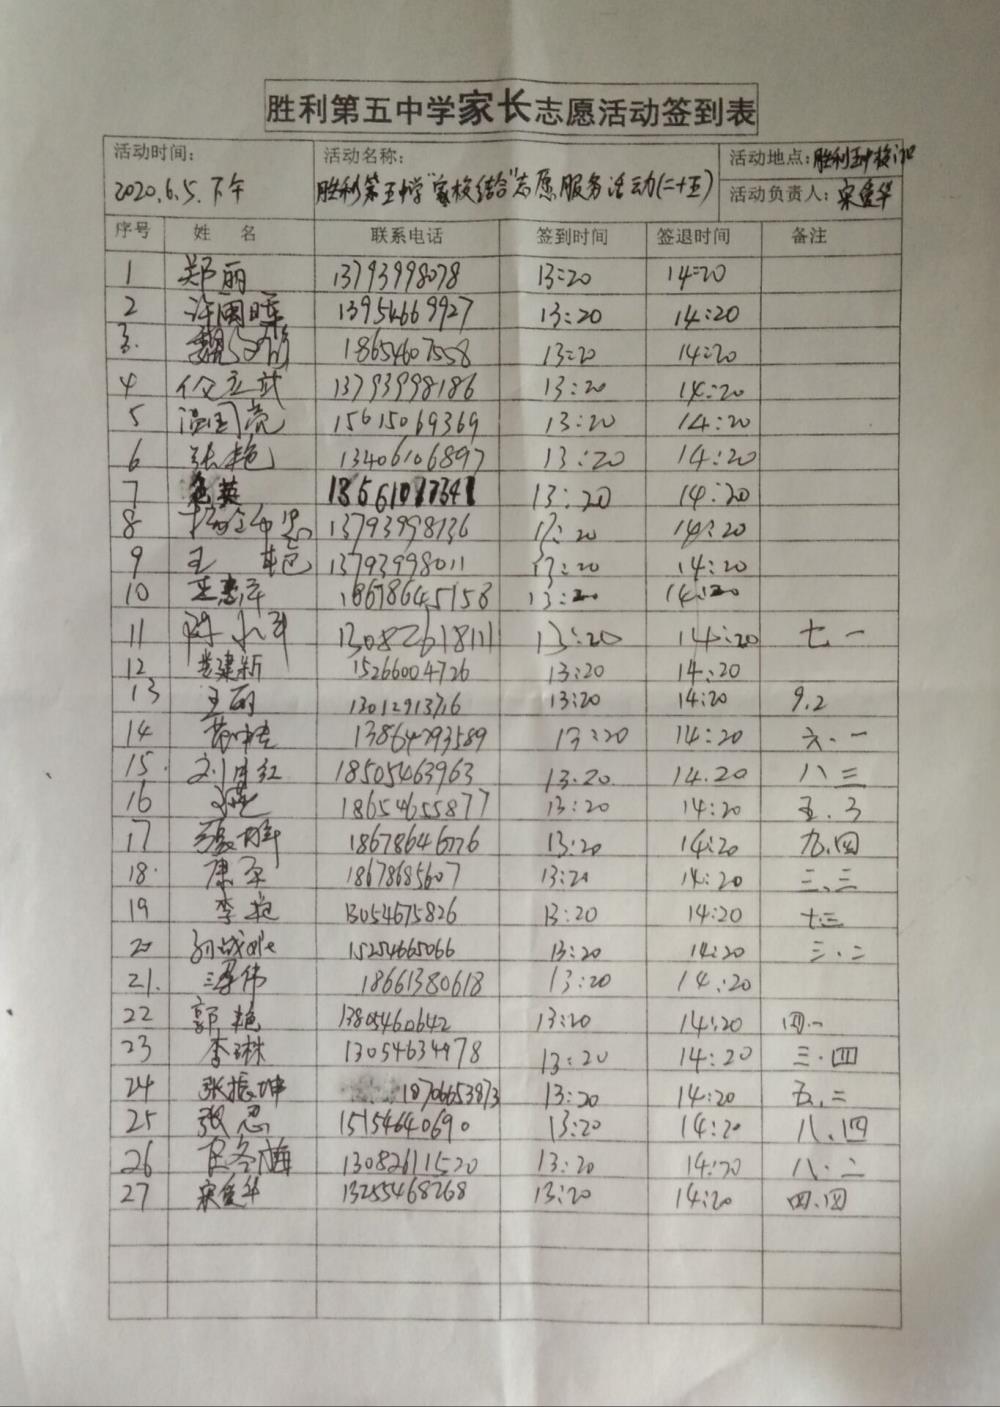 胜利第五中学家长志愿活动签到表
活动时间： 2020.6.5.下午
活动名称： 胜利第五中学“家校结合”志愿服务活动(二十五)
活动地点：胜利五中校门口
活动负责人：宋爱华
序号 姓 名 联系电话 签到时间 签退时间 备注
1 郑丽 13793998078 13:20 14:20
2 13954669927 13:20 14:20
3. 18654607558 13:20 14:20
4 13793998186 13:20 14:20
5 温国亮 15615069369 13:20 14:20
6 张艳 13406106897 13:20 14:20
7 13:20 14:20
8 13793998136 13:20 14:20
9 王艳 13793998011 13:20 14:20
10 18678645158 13:20 14:20
11 13082618111 13:20 14:20 七一
12 娄建新 15266004726 13:20 14:20
13 王丽 13012913716 13:20 14:20 9.2
14 13864793589 13:20 14:20 六.一
15. 刘月红 18505463963 13:20 14.20 八三
16 18654655877 13:20 14:20 五.3
17 18678646776 13:20 14:20 九.四
18. 康军 18678685607 13:20 14:20 三.三
19 李艳 13054675826 13:20 14:20 七.三
20 15254665066 13:20 14:20 三.二
21. 梁伟 18661380618 13:20 14:20
22 郭艳 13805460642 13:20 14:20 四.一
23 李琳 13054634978 13:20 14:20 三.四
24 张振坤 18706653873 13:20 14:20 五.二
25 张忍 15154640690 13:20 14:20 八.四
26 13082611520 13:20 14:20 八.二
27 宋爱华 13255468268 13:20 14:20 四.四